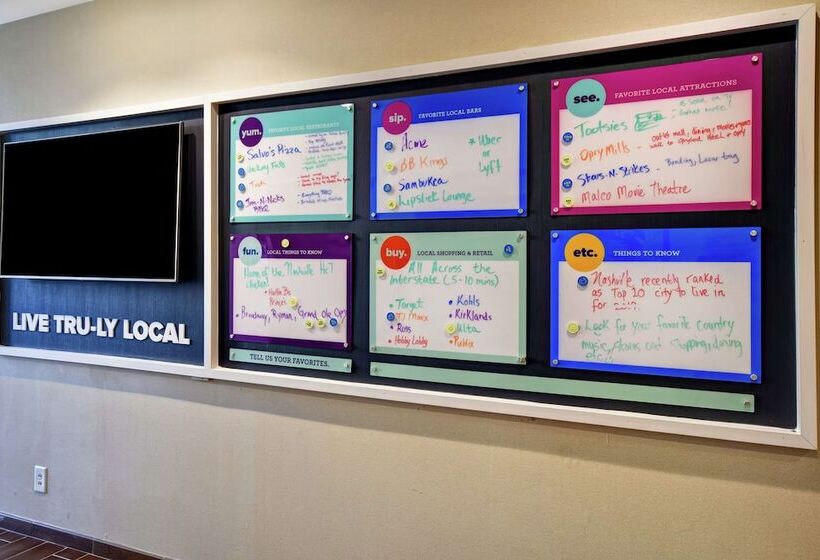 LIVE TRU-LY LOCAL
yum.
FAVORITE LOCAL RESTAURANTS
Salvo's Pizza
Jim-N-Nicks
BBQ
sip.
FAVORITE LOCAL BARS
Acme
BB Kings
Sambuca
Lipstick Lounge
* Uber
or
Lyft
see.
FAVORITE LOCAL ATTRACTIONS
Tootsies
Opry Mills -
Stars-N-Strikes - Bowling, Lazer tag
Malco Movie Theatre
fun.
LOCAL THINGS TO KNOW
Home of the Nashville Hot
chicken
Princes
Broadway, Ryman, Grand Ole Opry
buy.
LOCAL SHOPPING & RETAIL
All Across the
Interstate (5-10 mins)
Target
TJ Maxx
Ross
Hobby Lobby
Kohls
Kirklands
Ulta
Publix
etc.
THINGS TO KNOW
Nashville recently ranked
as Top 20 city to live in
for
Look for your favorite country
music, stores and shopping, dining
etc.
TELL US YOUR FAVORITES.